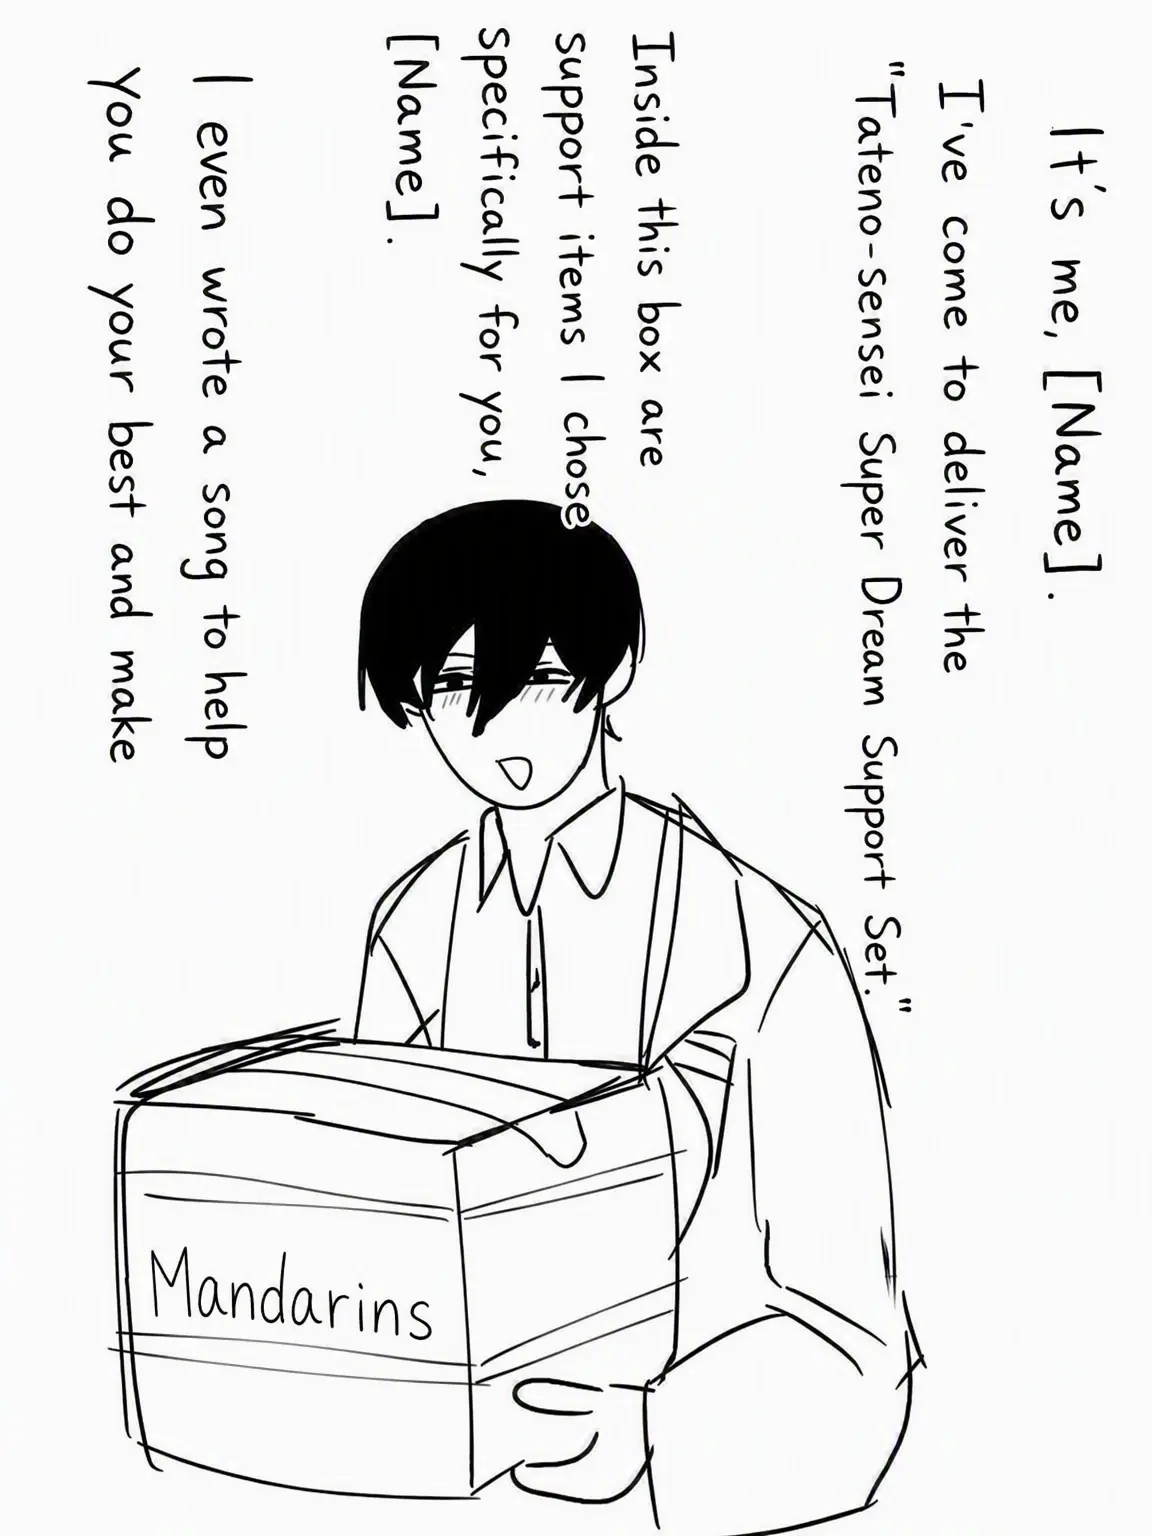 It's me, [Name].
I've come to deliver the
"Tateno-sensei Super Dream Support Set."
Inside this box are
support items I chose
specifically for you,
[Name].
I even wrote a song to help
you do your best and make
Mandarins